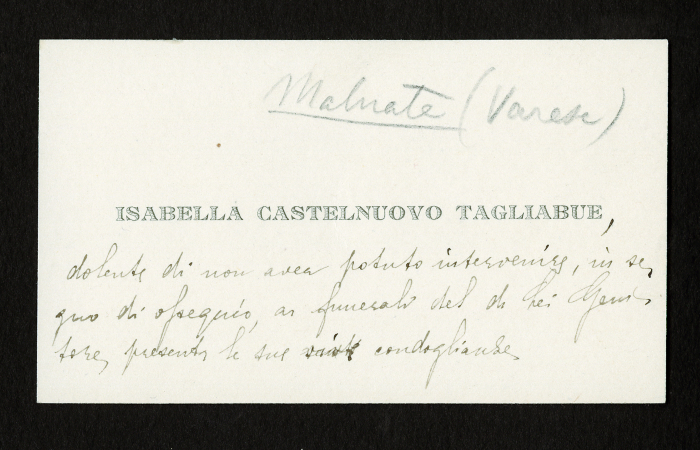 Malnate (Varese)
ISABELLA CASTELNUOVO TAGLIABUE,
dolente di non aver potuto intervenire, in se,
gno di ossequio, ai funerali del di Lei Geni,
tore, presenta le sue vive condoglianze